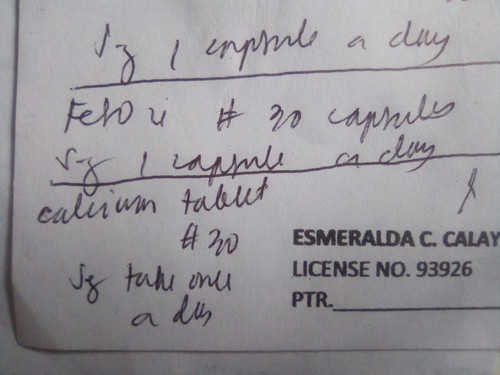 Sig 1 capsule a day
# 30 capsules
Sig 1 capsule a day
calcium tablet
# 30
Sig take once
a day
ESMERALDA C. CALAY
LICENSE NO. 93926
PTR.